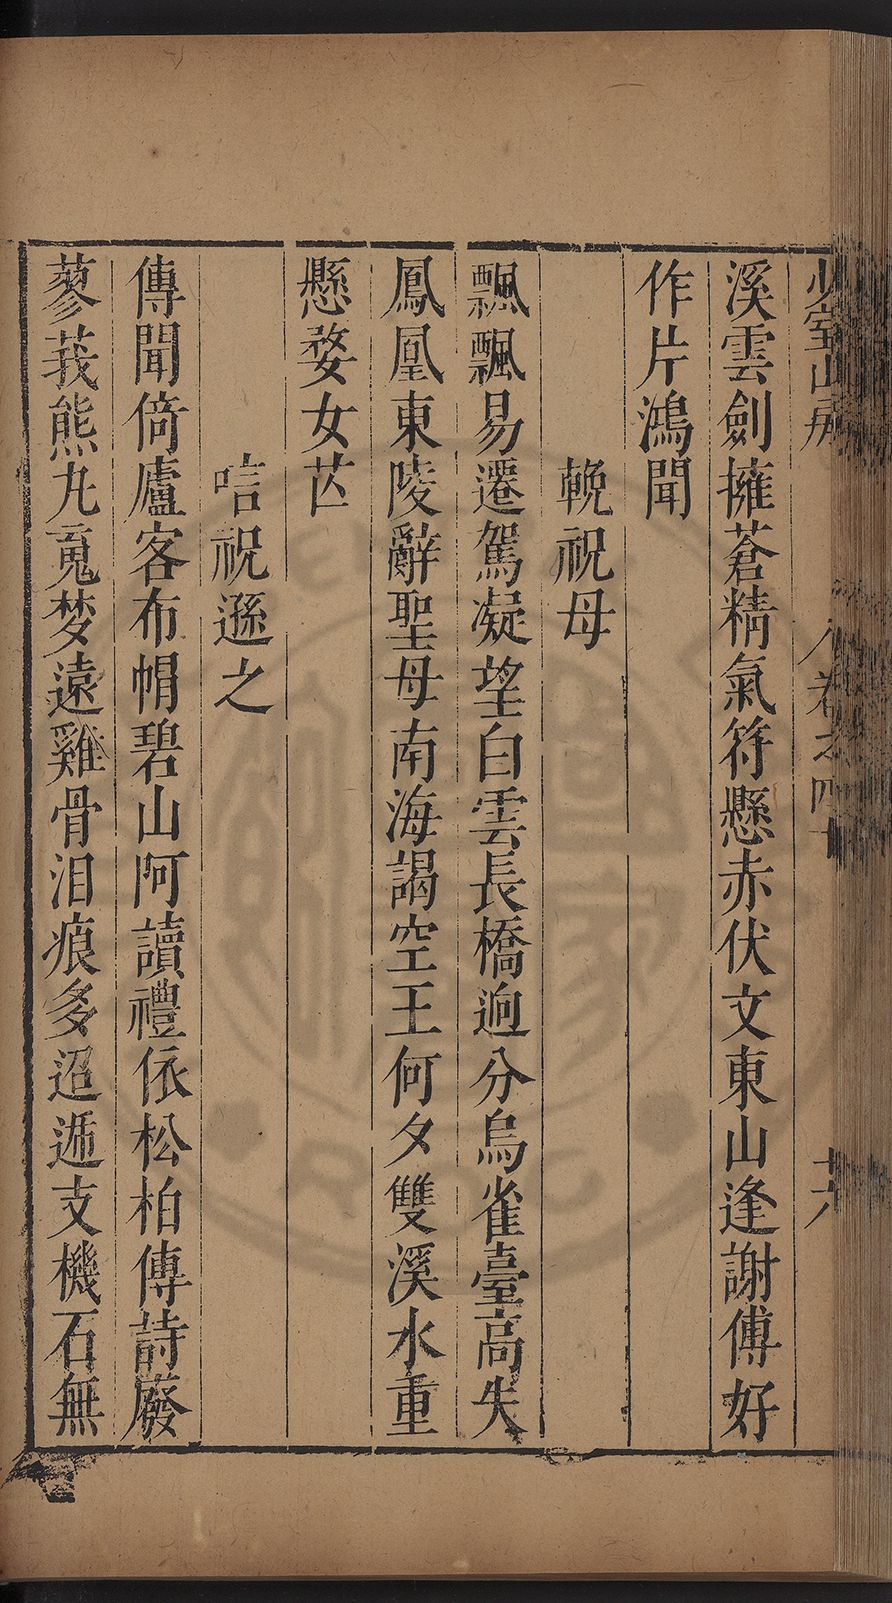 少室山房 卷之四十 十六
溪雲劍擁蒼精氣符懸赤伏文東山逢謝傅好
作片鴻聞
輓祝母
飄飄易遷駕凝望白雲長橋逈分烏雀臺高失
鳳凰東陵辭聖母南海謁空王何夕雙溪水重
懸婺女芒
唁祝遜之
傳聞倚廬客布帽碧山阿讀禮依松柏傳詩廢
蓼莪熊丸䰟梦遠雞骨泪痕多迢遞支機石無